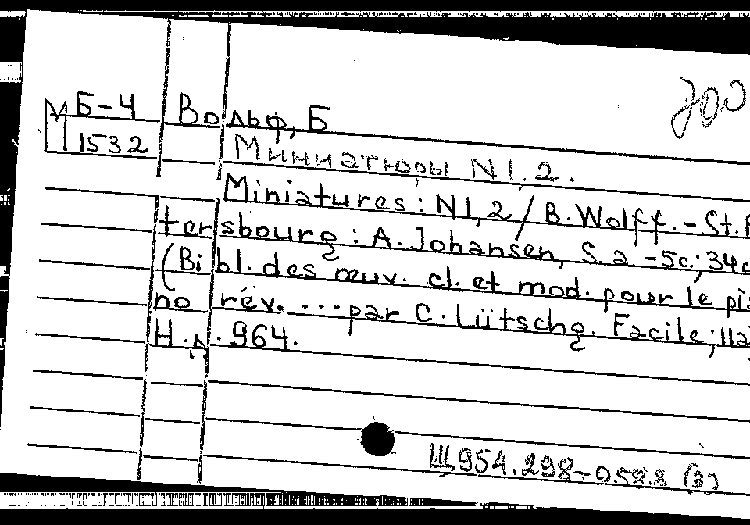 700
М Б-4 Вольф, Б
1532 Миниатюры N1,2.
Miniatures: N1,2 / B. Wolff. - St. P
tersbourg: A. Johansen, S.a - 5c; 34c
(Bibl. des œuv. cl. et mod. pour le pi
no rév. ... par C. Lütschg. Facile;
Н.д. 964.
Щ954.298-058.8 (3)